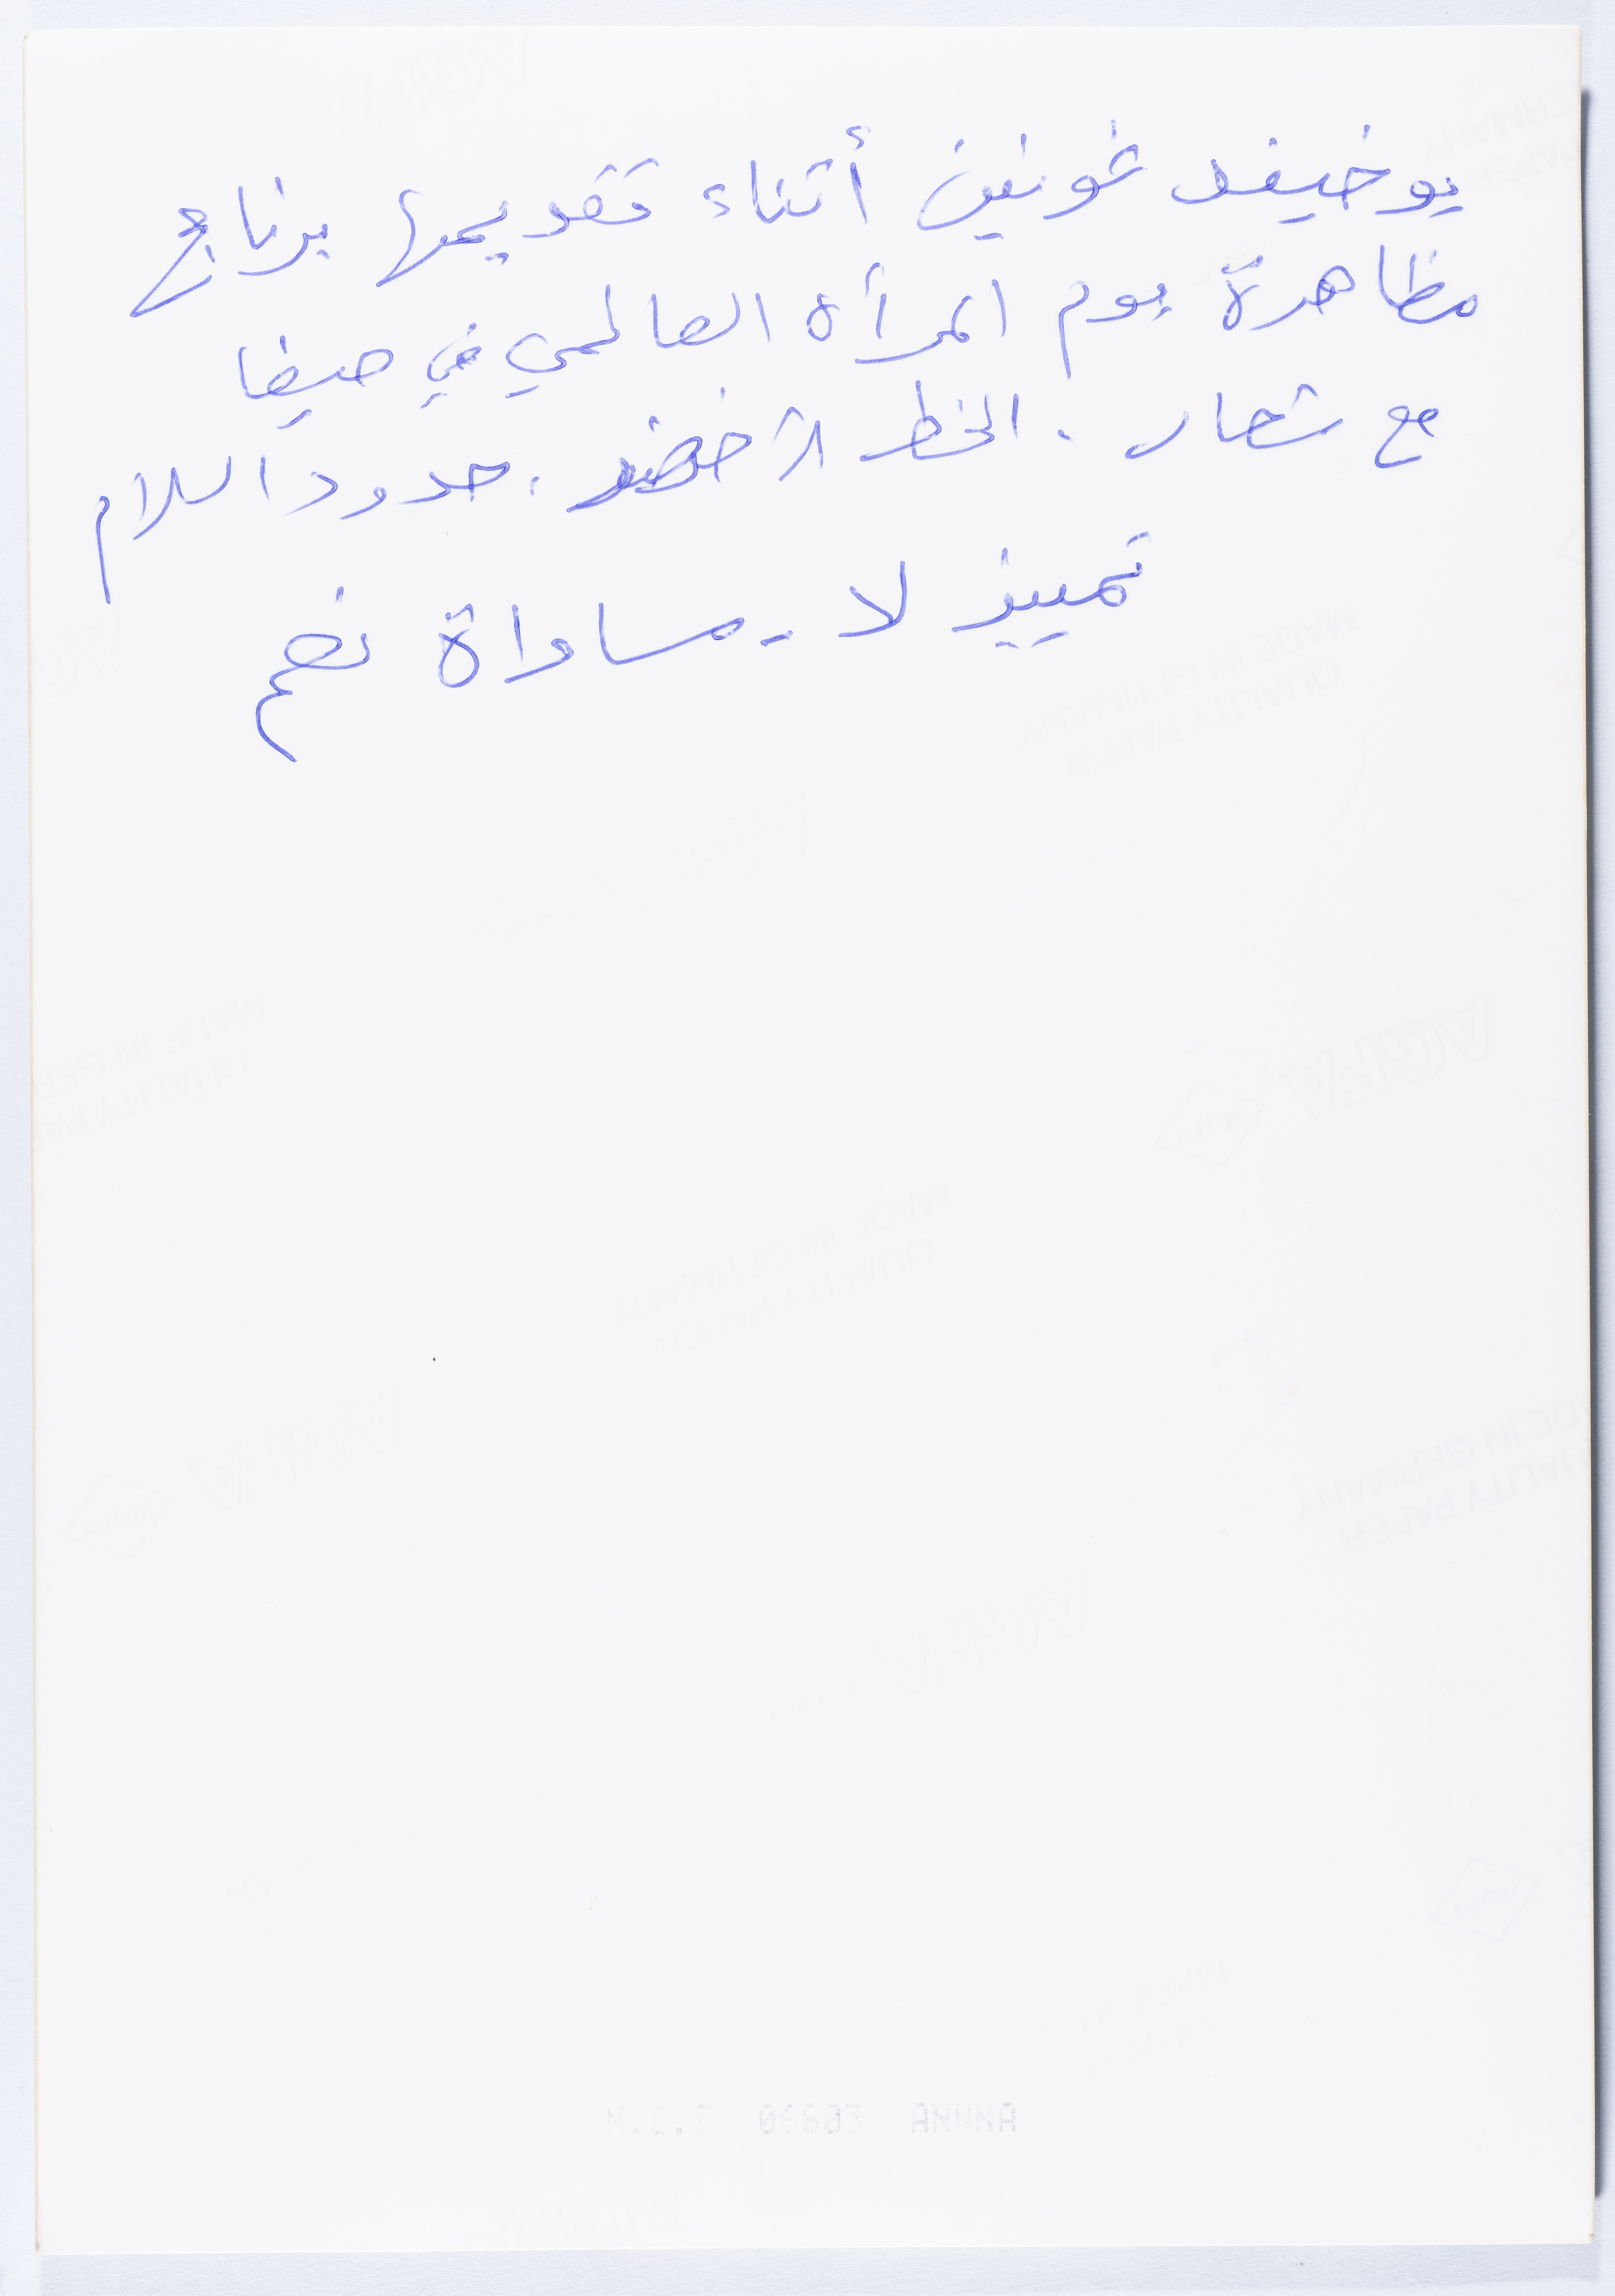 يوخيفد غونين أثناء تقديمها برنامج
مظاهرة يوم المرأة العالمي في حيفا
مع شعار . الخط الأخضر . حدود السلام
تمييز لا - مساواة نعم
AGFA
MADE IN GERMANY
QUALITY PAPER